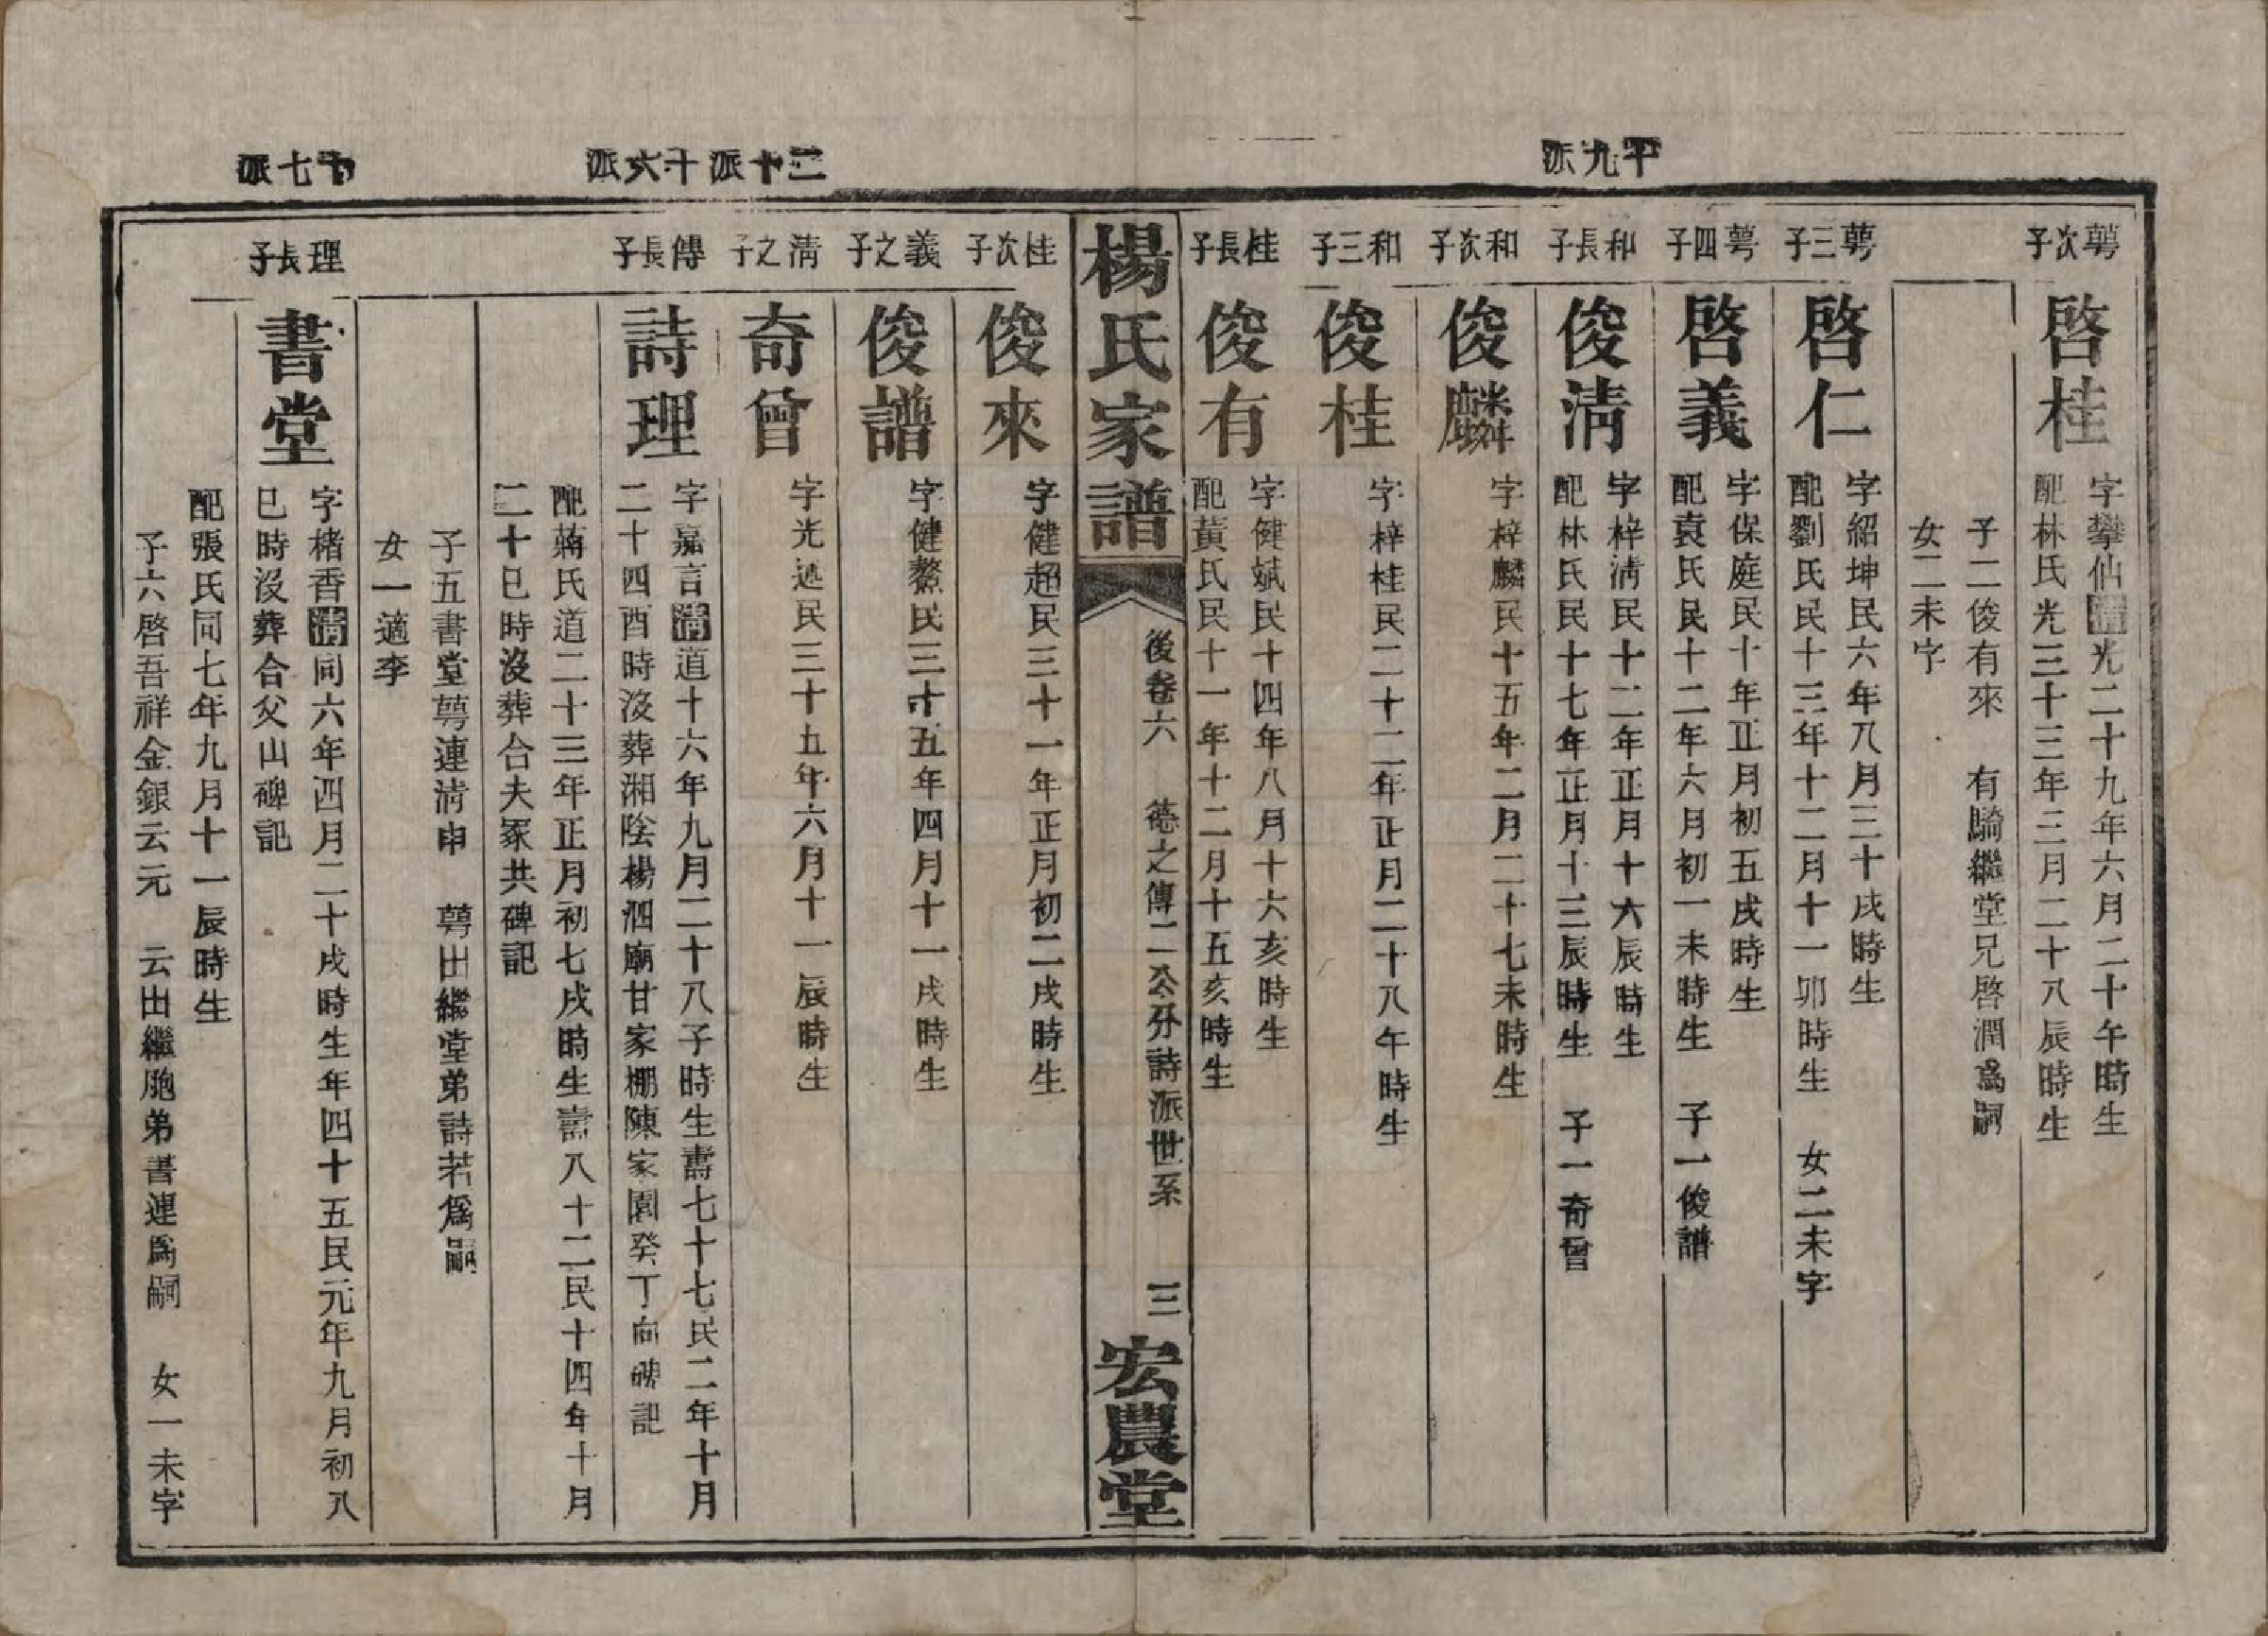 十九派
萼次子
啓桂
字攀仙清光二十九年六月二十午時生
配林氏光三十三年三月二十八辰時生
子二俊有來　有騎繼堂兄啓潤爲嗣
女二未字
萼三子
啓仁
字紹坤民六年八月三十戌時生
配劉氏民十三年十二月十一卯時生　女二未字
萼四子
啓義
字保庭民十年正月初五戌時生
配袁氏民十二年六月初一未時生　子一俊譜
和長子
俊清
字梓清民十二年正月十六辰時生
配林氏民十七年正月十三辰時生　子一奇曾
和次子
俊麟
字梓麟民十五年二月二十七未時生
和三子
俊桂
字梓桂民二十二年正月二十八午時生
桂長子
俊有
字健斌民十四年八月十六亥時生
配黃氏民十一年十二月十五亥時生
楊氏家譜
後卷六　德之傳二公分詩派世系　三
宏農堂
二十派
桂次子
俊來
字健超民三十一年正月初二戌時生
義之子
俊譜
字健鰲民三十五年四月十一戌時生
清之子
奇曾
字光遜民三十九年六月十一辰時生
十六派
傳長子
詩理
字嘉言清道十六年九月二十八子時生壽七十七民二年十月
二十四酉時沒葬湘陰楊泗廟甘家棚陳家園癸丁向碑記
配蔣氏道二十三年正月初七戌時生壽八十二民十四年十月
二十巳時沒葬合夫冢共碑記
子五書堂萼連清申　萼出繼堂弟詩若爲嗣
女一適李
十七派
理長子
書堂
字楮香清同六年四月二十戌時生年四十五民元年九月初八
巳時沒葬合父山碑記
配張氏同七年九月十一辰時生
子六啓吾祥金銀云元　云出繼胞弟書連爲嗣　女一未字